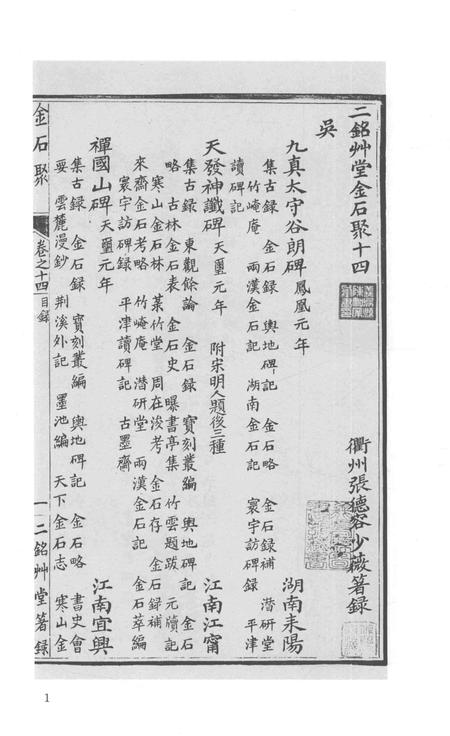 二銘艸堂金石聚十四
衢州張德容少薇箸録
吳
九真太守谷朗碑 鳳凰元年 湖南耒陽
集古録 金石録 輿地碑記 金石略 金石録補 潛研堂
竹崦庵 兩漢金石記 湖南金石記 寰宇訪碑録 平津
讀碑記
天發神讖碑 天璽元年 附宋明人題後三種 江南江甯
集古録 東觀餘論 金石録 寶刻叢編 輿地碑記 金石
略 古林金石表 金石史 曝書亭集 竹雲題跋 元牘記
寒山金石林 菉竹堂 周在浚考 金石存 金石録補
來齋金石考略 竹崦庵 潛研堂 兩漢金石記 金石萃編
寰宇訪碑録 平津讀碑記 古墨齋
禪國山碑 天璽元年 江南宜興
集古録 金石録 寶刻叢編 輿地碑記 金石略 書史會
要 雲麓漫鈔 荆溪外記 墨池編 天下金石志 寒山金
金石聚 卷之十四 目録 一 二銘艸堂箸録
1